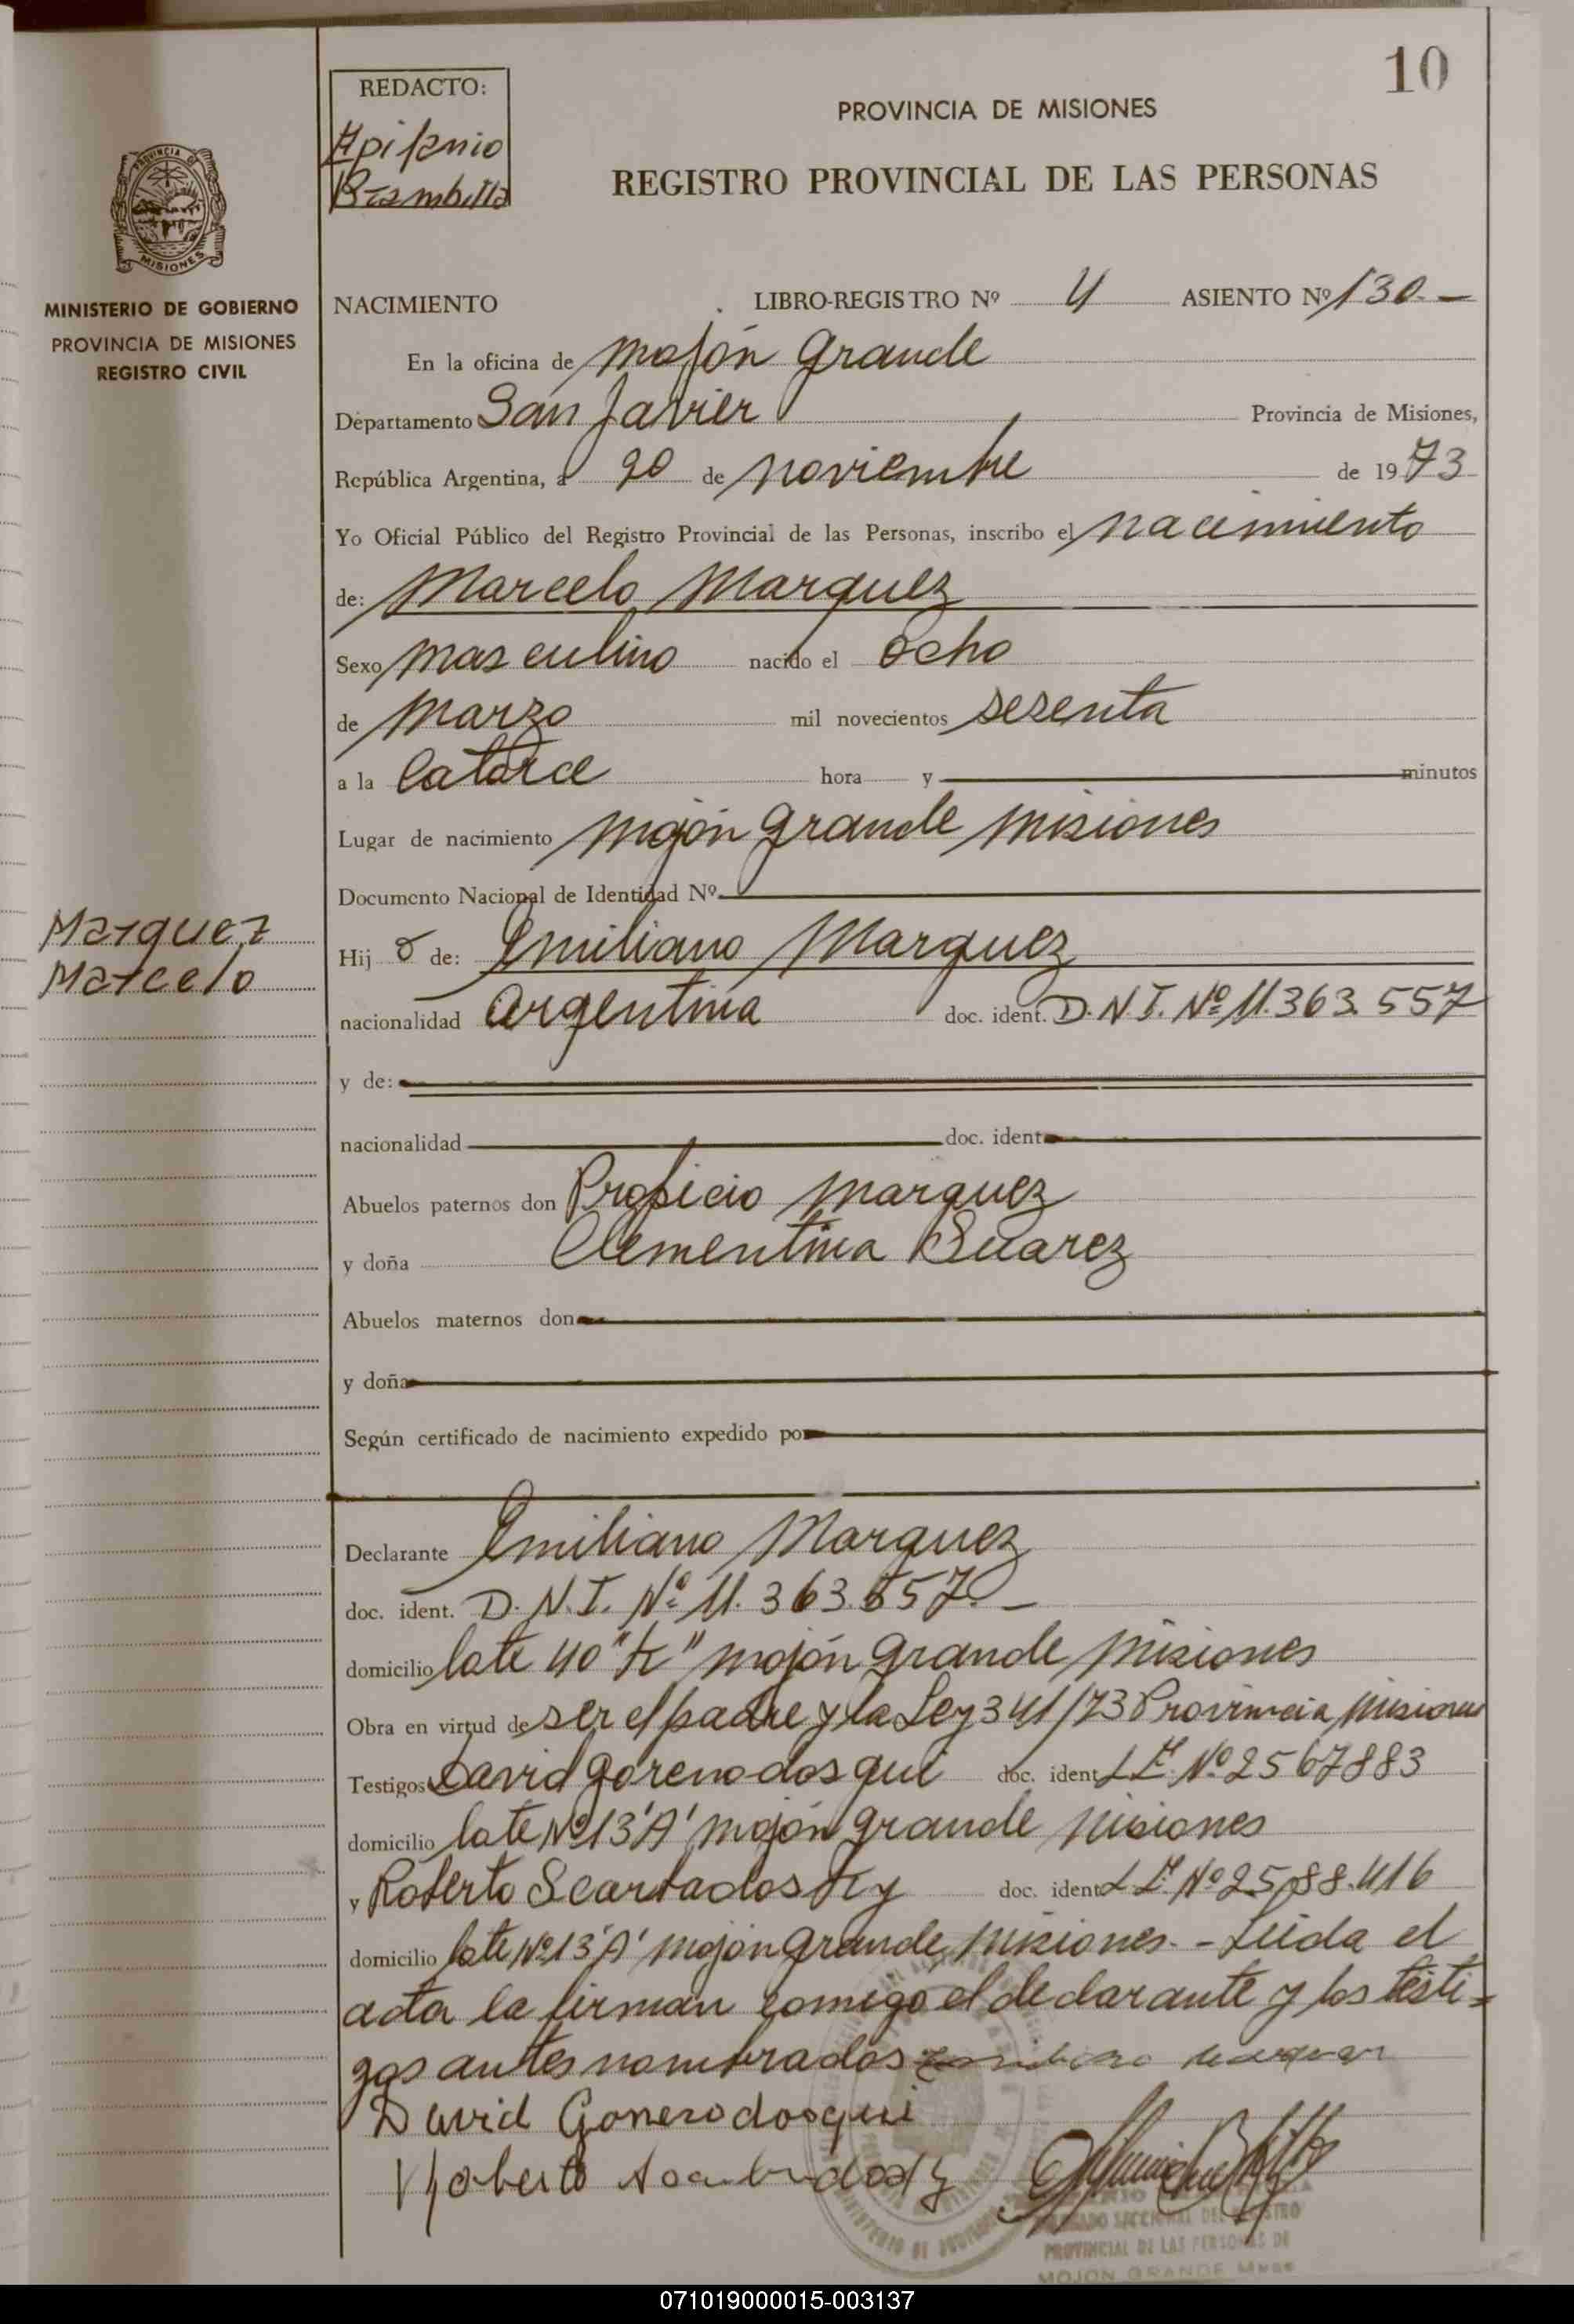 10
REDACTO:
Epifanio
Brambilla
PROVINCIA DE MISIONES
REGISTRO PROVINCIAL DE LAS PERSONAS
PROVINCIA DE
MISIONES
MINISTERIO DE GOBIERNO
PROVINCIA DE MISIONES
REGISTRO CIVIL
NACIMIENTO LIBRO-REGISTRO Nº 4 ASIENTO Nº 130.—
En la oficina de Mojón Grande
Departamento San Javier Provincia de Misiones,
República Argentina, a 20 de noviembre de 1973
Yo Oficial Público del Registro Provincial de las Personas, inscribo el nacimiento
de: Marcelo Marquez
Sexo masculino nacido el ocho
de marzo mil novecientos sesenta
a la catorce hora y minutos
Lugar de nacimiento Mojón Grande Misiones
Documento Nacional de Identidad Nº
Marquez
Marcelo
Hijo de: Emiliano Marquez
nacionalidad argentina doc. ident. D.N.I. Nº 11.363.557
y de:
nacionalidad doc. ident
Abuelos paternos don Proficio Marquez
y doña Clementina Suarez
Abuelos maternos don
y doña
Según certificado de nacimiento expedido por
Declarante Emiliano Marquez
doc. ident. D.N.I. Nº 11.363.557.—
domicilio lote 40 "K" Mojón Grande Misiones
Obra en virtud de ser el padre y la Ley 341/73 Provincia Misiones
Testigos David Gorenodosqui doc. ident L.E. Nº 2567883
domicilio lote Nº 13 'A' Mojón Grande Misiones
y Roberto Scartadosky doc. ident L.E. Nº 2588.416
domicilio lote Nº 13 'A' Mojón Grande, Misiones.- Leida el
acta la firman comigo el declarante y los testi=
gos antes nombrados
David Gonerodosqui
Roberto
PROVINCIAL DE LAS PERSONAS DE
MOJON GRANDE Mnes
071019000015-003137